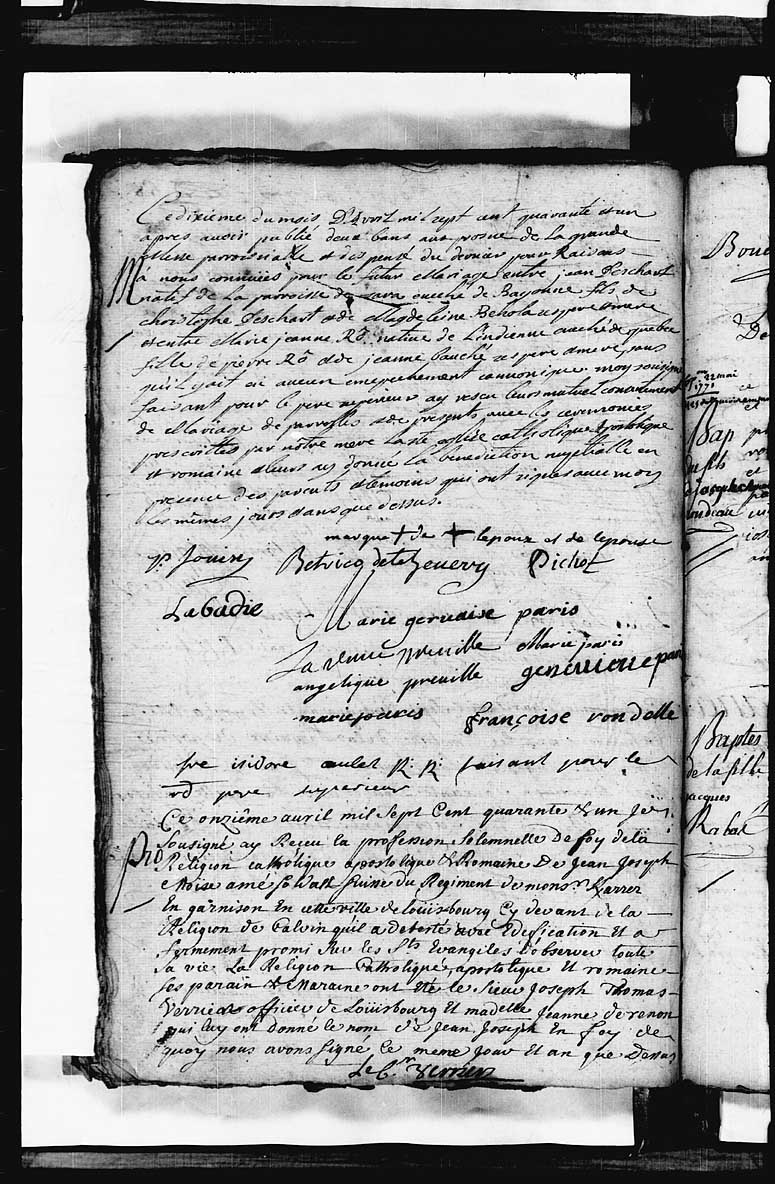 Ce dixieme du mois D'Avril mil sept cent quarante et un
apres avoir publié deux bans aux prosne de la grande
Messe parroissialle et dispensé du dernier pour Raisons
M à nous connuës pour le futur Mariage entre jean Deschart
natif de La parroisse de eveché de Bayonne fils de
christophe Deschart et de Magdeleine Behola ses pere et mere
et entre Marie jeanne Rô native de Lindienne eveché de quebec
fille de pierre Rô et de jeanne bauché ses pere et mere sans
qu'il y ait eü aucun empechement cannonique moy soussigné
faisant pour le pere superieur ay reçu leurs mutuel consentement
de Mariage de parrolles et de presents avec les ceremonies
prescrittes par nôtre mere la ste eglise catholique apostolique
et romaine et leurs ay donné la benediction nuptialle en
presence des parents et temoins qui ont signés avec moy
les mêmes jours et ans que dessus.
marque + de + lepoux et de lepouse
Pr Jouin Dichot
Labadie
Marie gervaise paris
La veuve preville Marie paris
angelique preville genevieve pari
marie paris françoise rondelle
fre isidore caulet R: R: faisant pour le
rd pere superieur
Ce onziême avril mil Sept Cent quarante & un je
Sousigné ay Reçeu la profession Solemnelle De foy de la
pro Religion catholique apostolique & Romaine De Jean Joseph
Moise amé Suisse du Regiment de monsr Karrer
En garnison En cette ville de loüisbourg Cy devant de la
Religion de Calvin quil a deteste avec Edification Et a
fermement promi Sur les Sts Evangiles d'observer toute
Sa vie La Religion Catholique, apostolique Et romaine
ses parain & Maraine ont Eté le Sieur Joseph Thomas
Verrier officier de Loüisbourg Et madelle Jeanne de renon
qui luy ont donné le nom de Jean Joseph En foy de
quoy nous avons Signé le meme Jour Et an que Dessus
Le Cr Verrier
Bap
du fils
Baptes
de la fille
jacques